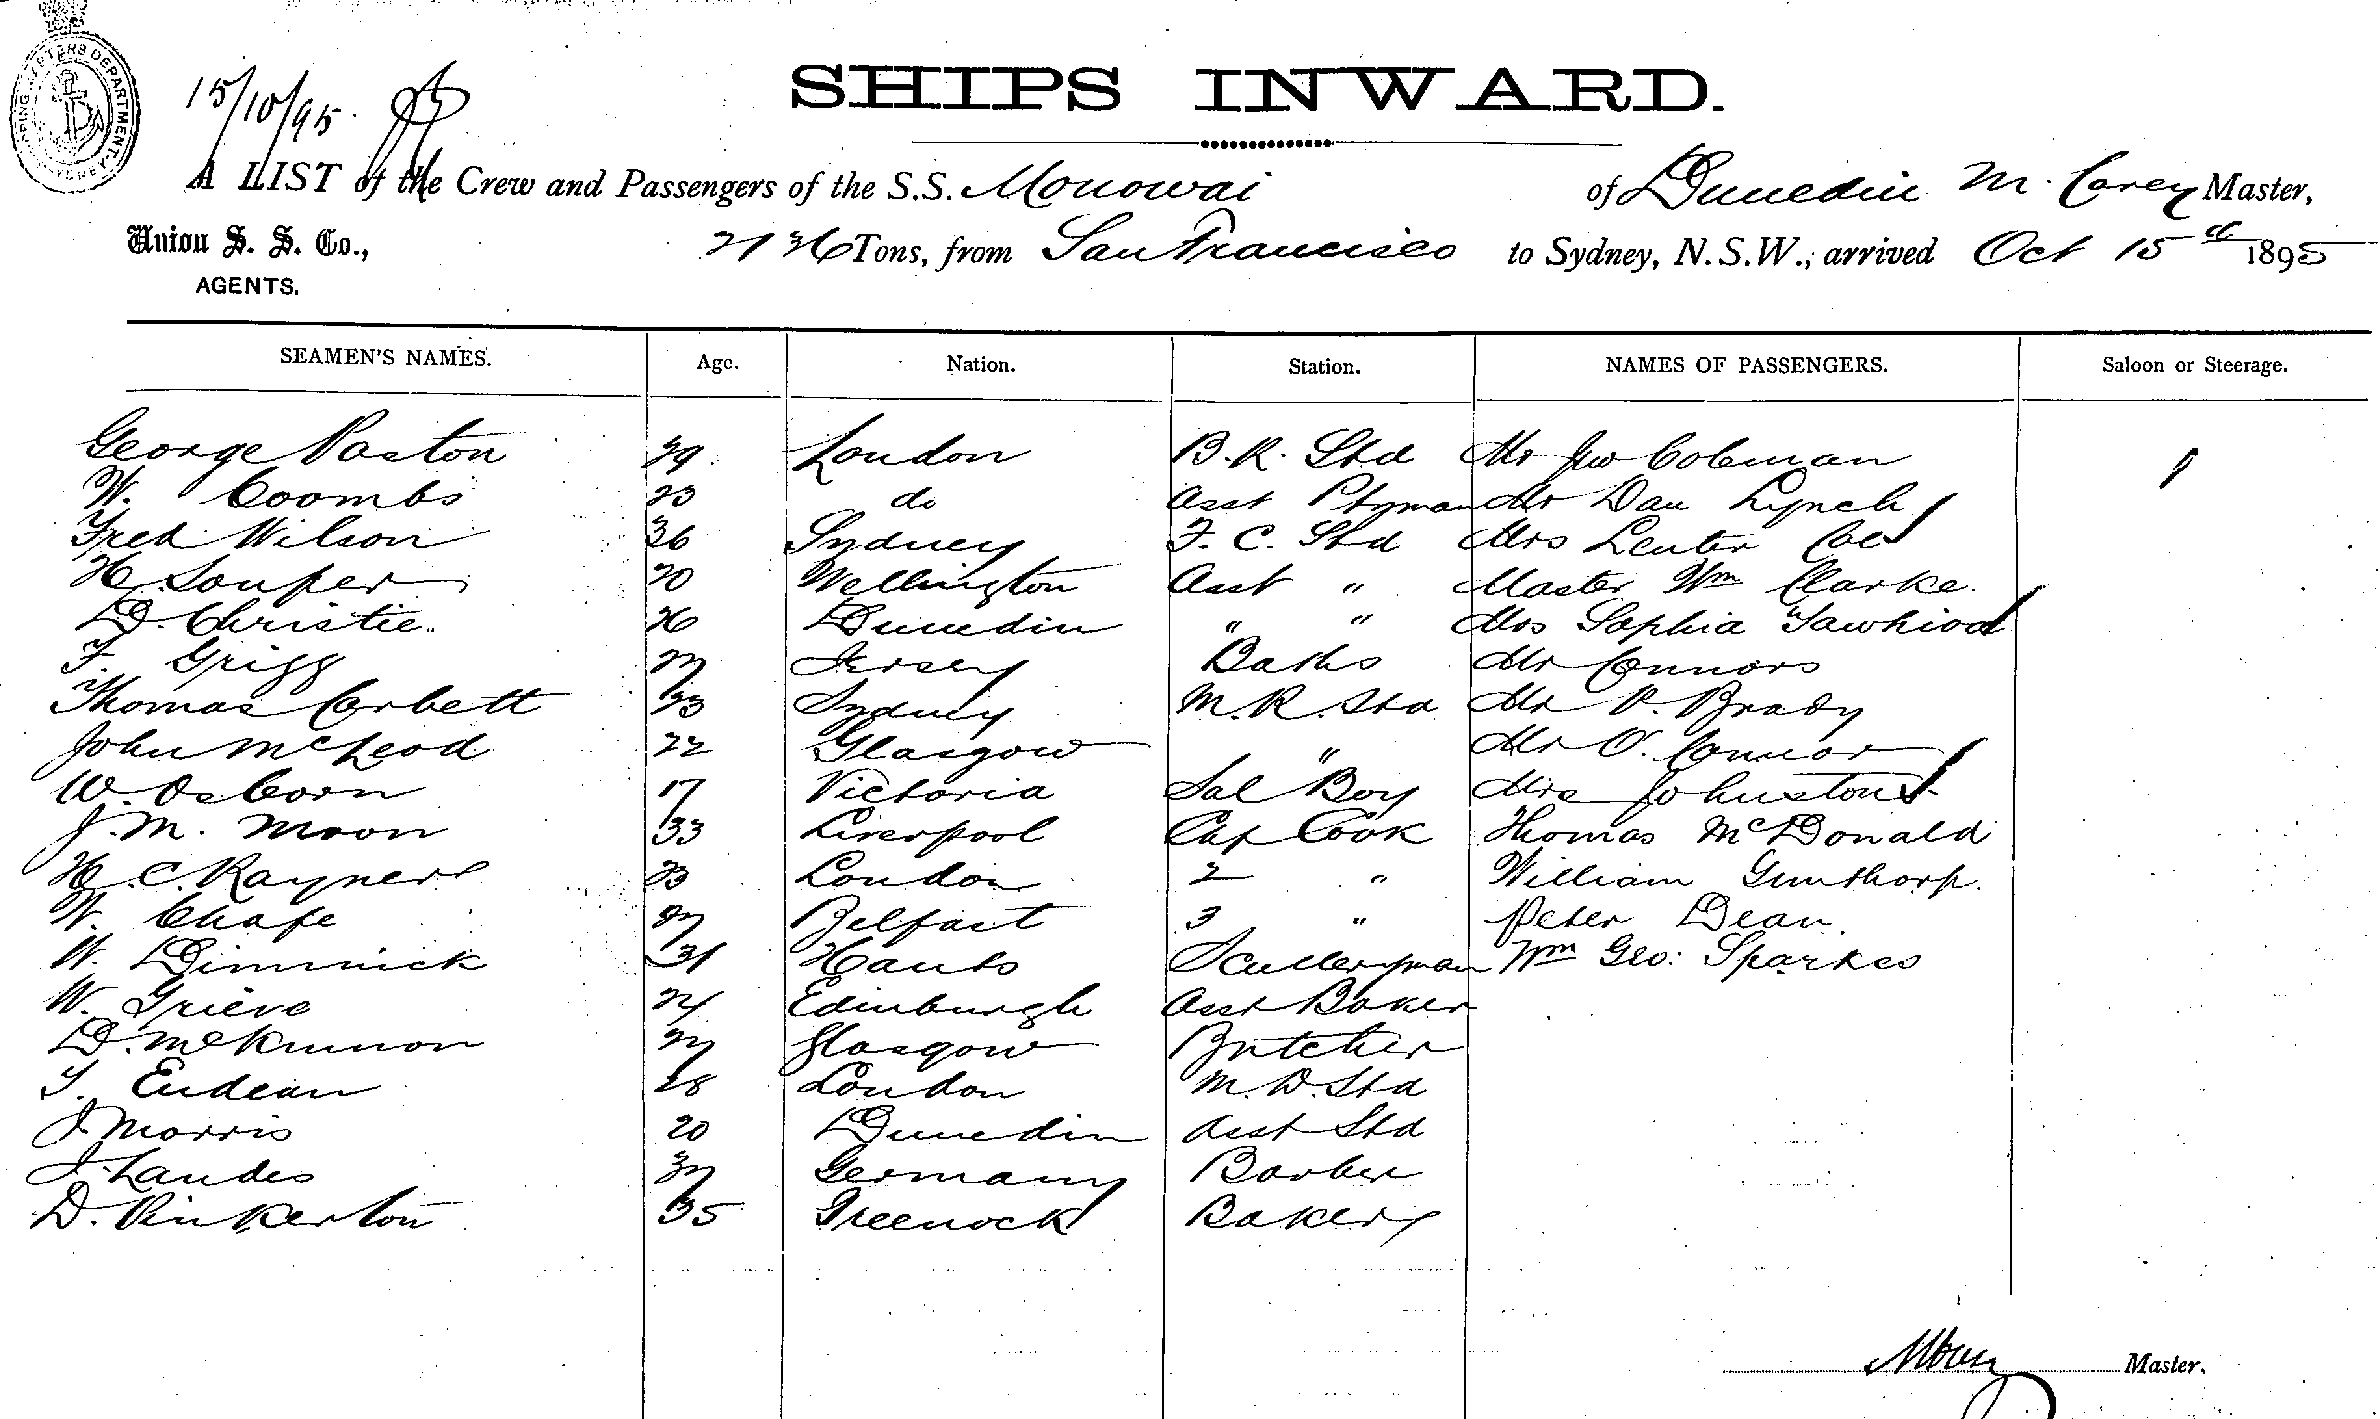 SHIPPING MASTERS DEPARTMENT SYDNEY
15/10/95
SHIPS INWARD.
A LIST of the Crew and Passengers of the S.S. Monowai of Dunedin M. Carey Master,
Union S. S. Co., 2136 Tons, from San Francisco to Sydney, N.S.W., arrived Oct 15th 1895
AGENTS.
SEAMEN'S NAMES. Age. Nation. Station. NAMES OF PASSENGERS. Saloon or Steerage.
George Paston 29 London B.R. Std Mr Jno Coleman
W. Coombs 23 do Asst Ptyman Mr Dan Lynch
Fred Wilson 36 Sydney F. C. Std Mrs Coe
H. Souper 20 Wellington Asst " Master Wm Clarke.
D. Christie. 26 Dunedin " " Mrs Sophia
F. Grigg 27 Jersey Baths Mr Connors
Thomas Corbett 33 Sydney M.R. Std Mr P. Brady
John McLeod 22 Glasgow " Mr O. Connor
W. Osborn 17 Victoria Sal Boy Mrs Johnston
J. M. Moon 33 Liverpool Chf Cook Thomas McDonald
H. C. Rayner 23 London 2 " William Gunthorp.
W. Chafe 27 Belfast 3 " Peter Dean.
W. Dimmick 31 Hants Sculleryman Wm Geo: Sparkes
W. Grieve 24 Edinburgh Asst Baker
D. McKinnon 27 Glasgow Butcher
T. Eudean 28 London M.D. Std
J. Morris 20 Dunedin Asst Std
J. Landes 37 Germany Barber
D. Pinkerton 35 Greenock Baker
M Carey Master.